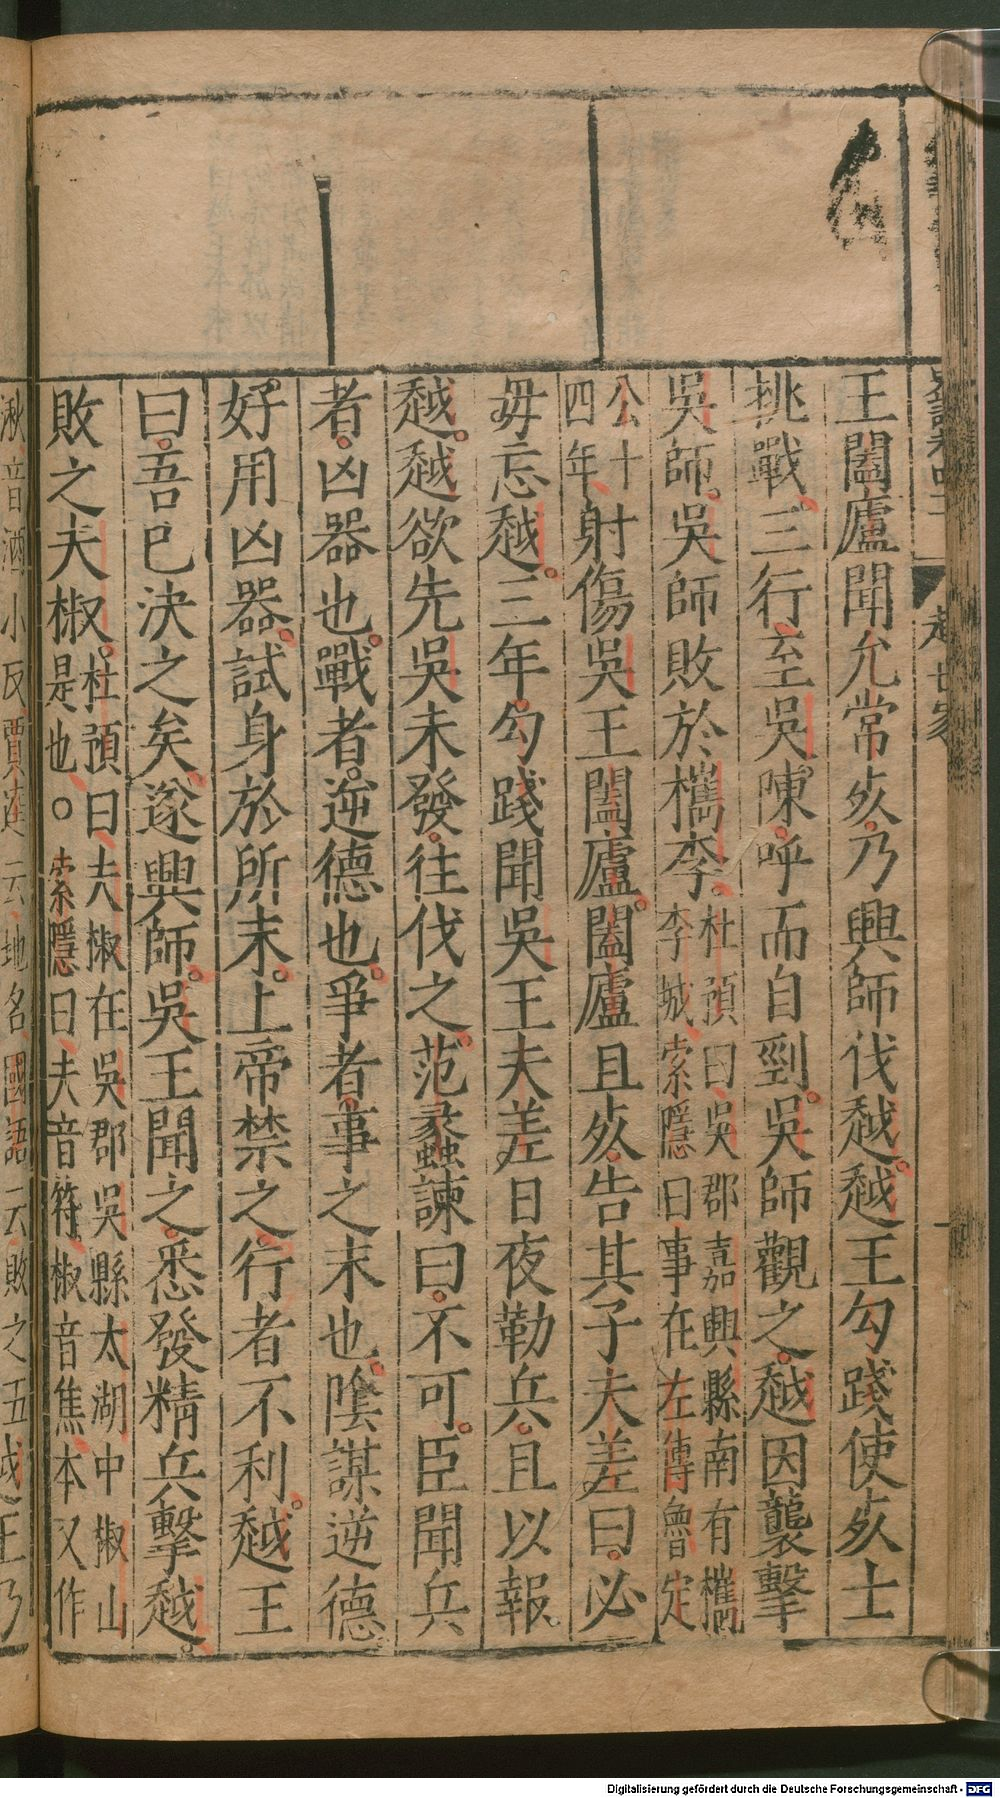 王闔廬聞允常死乃興師伐越越王勾踐使死士
挑戰三行至吳陳呼而自剄吳師觀之越因襲擊
吳師吳師敗於檇李杜預曰吳郡嘉興縣南有檇李城索隱曰事在左傳魯定
公十四年射傷吳王闔廬闔廬且死告其子夫差曰必
毋忘越三年勾踐聞吳王夫差日夜勒兵且以報
越越欲先吳未發往伐之范蠡諫曰不可臣聞兵
者凶器也戰者逆德也爭者事之末也陰謀逆德
好用凶器試身於所末上帝禁之行者不利越王
曰吾已決之矣遂興師吳王聞之悉發精兵擊越
敗之夫椒杜預曰夫椒在吳郡吳縣太湖中椒山是也○索隱曰夫音符椒音焦本又作
湫音酒小反賈逵云地名國語云敗之五湖越王乃
越世家
Digitalisierung gefördert durch die Deutsche Forschungsgemeinschaft - DFG